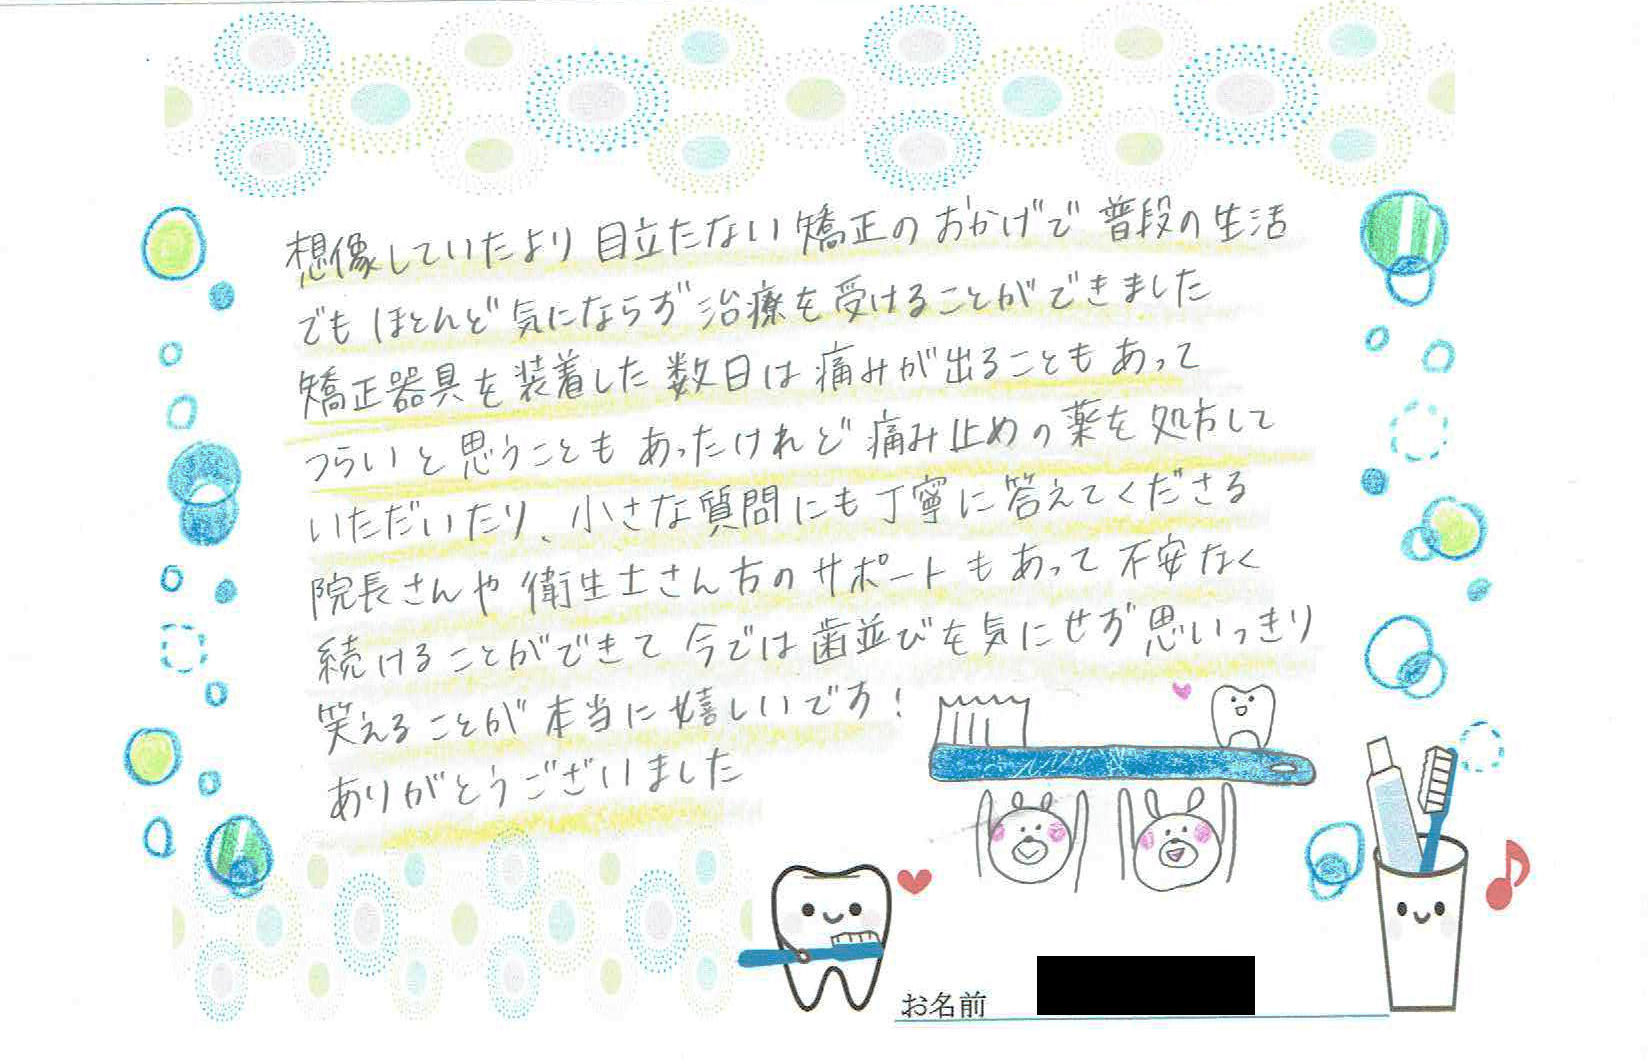 想像していたより目立たない矯正のおかげで普段の生活
でもほとんど気にならず治療を受けることができました
矯正器具を装着した数日は痛みが出ることもあって
つらいと思うこともあったけれど痛み止めの薬を処方して
いただいたり、小さな質問にも丁寧に答えてくださる
院長さんや衛生士さん方のサポートもあって不安なく
続けることができて今では歯並びを気にせず思いっきり
笑えることが本当に嬉しいです!
ありがとうございました
お名前